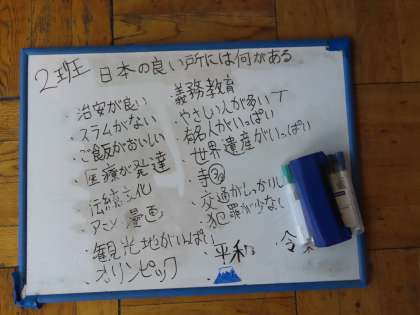 2班 日本の良い所には何がある
・治安が良い
・スラムがない
・ご飯がおいしい
・医療が発達
・伝統文化
・アニメ 漫画
・観光地がいっぱい
・オリンピック
義務教育
・やさしい人が多い
・有名人がいっぱい
・世界遺産がいっぱい
・寺
・交通がしっかりし
・犯罪が少ない
・平和